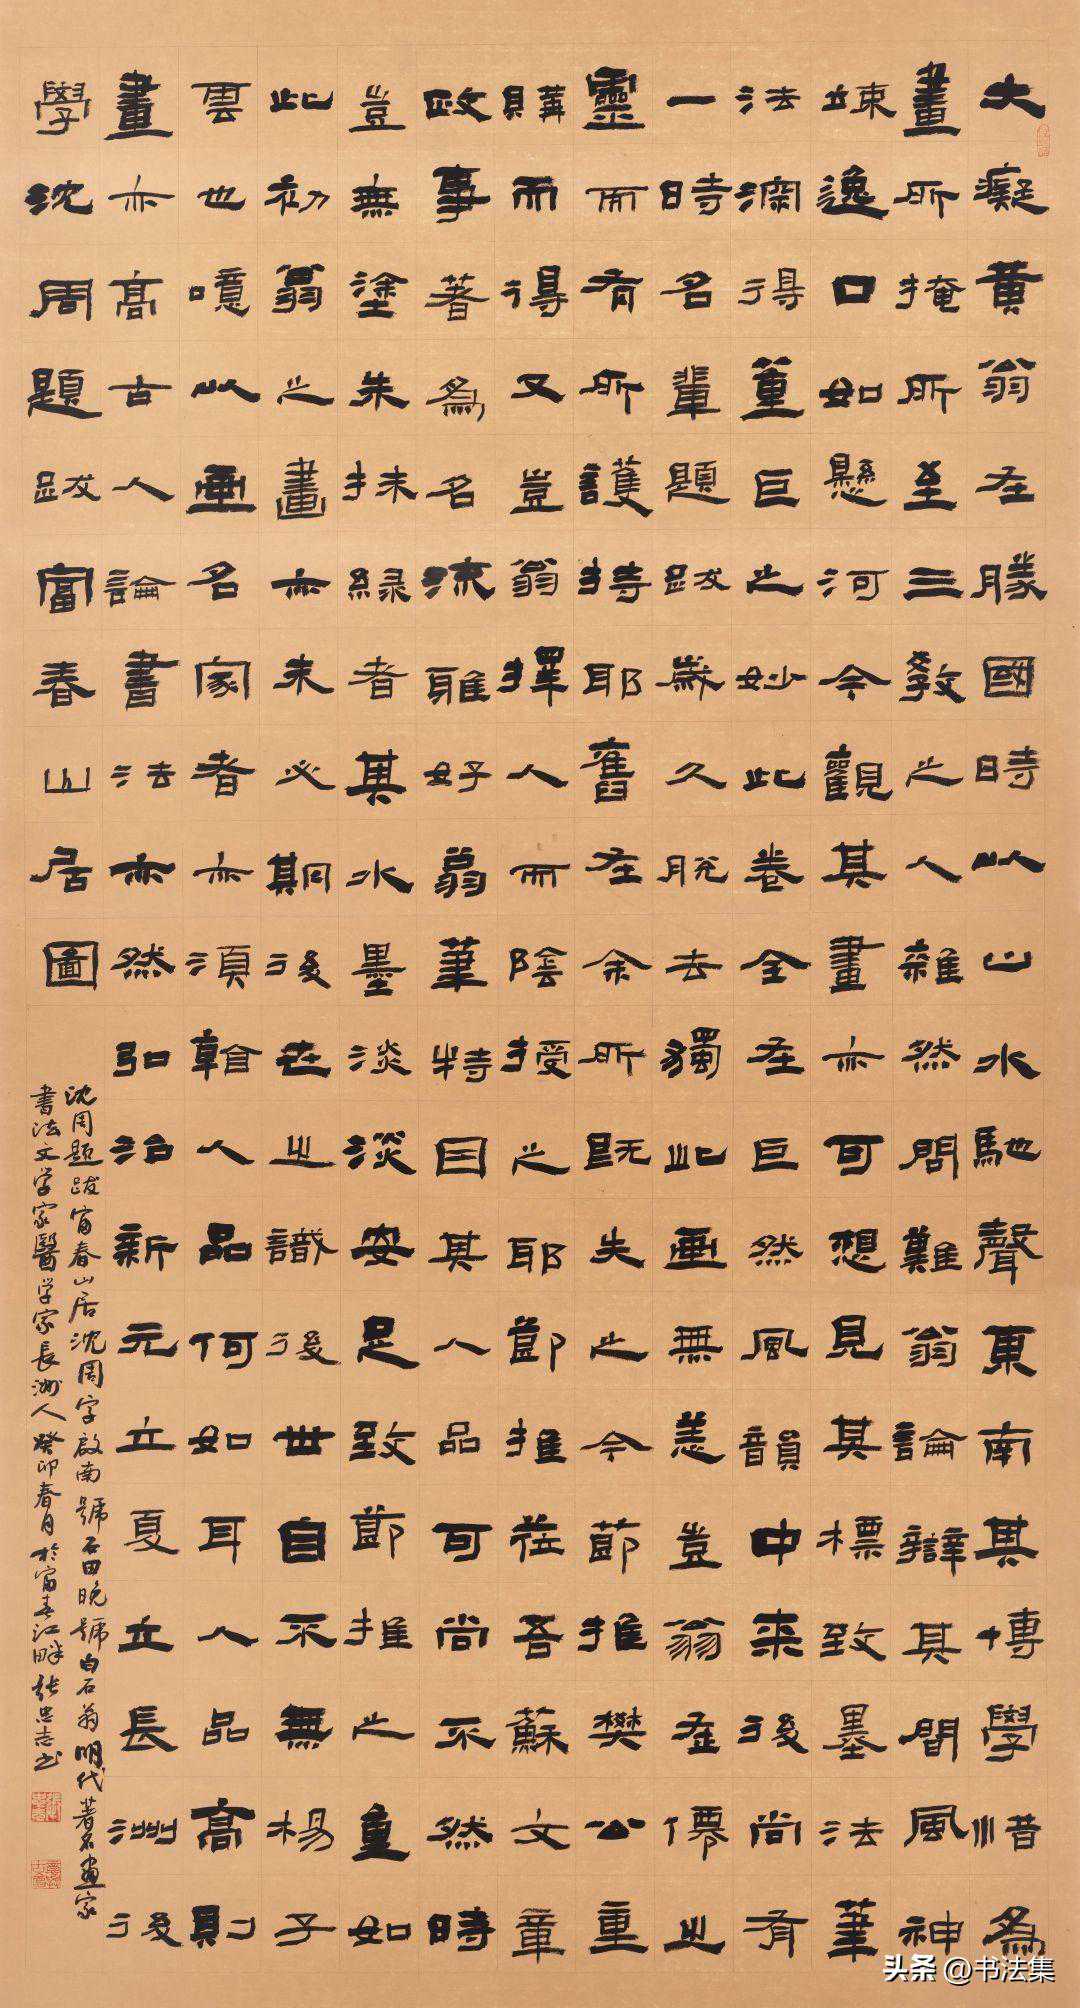 大癡黃翁在勝國時以山水馳聲東南其博學惜為
畫所掩所至三教之人雜然問難翁論辯其間風神
竦逸口如懸河今觀其畫亦可想見其標致墨法筆
法淵得董巨之妙此卷全在巨然風韻中来後尚有
一時名輩題跋歲久脫去獨此画無恙豈翁在僊之
靈而有所護持耶舊在余所既失之今節推樊公重
購而得又豈翁擇人而陰授之耶節推莅吾蘇文章
政事著為名流雅好翁筆特因其人品可尚不然時
豈無塗朱抹綠者其水墨淡淡安足致節推之重如
此初翁之畫亦未必期後世之識後世自不無楊子
雲也噫以画名家者亦須翰人品何如耳人品高則
畫亦高古人論書法亦然弘治新元立夏立長洲後
學沈周題跋富春山居圖
沈周題跋富春山居沈周字啟南號石田晚號白石翁明代著名畫家
書法文学家醫学家長洲人癸卯春月於富春江畔張忠志书
头条 @书法集